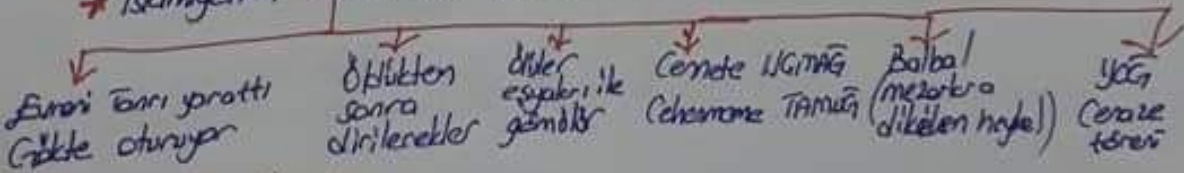 Evreni Tanrı yarattı
Gökte oturuyor
Öldükten
sonra
dirilecekler
ölüler
eşyaları ile
gömülür
Cennete UÇMAĞ
Cehenneme TAMUĞ
Balbal
(mezarlara
dikilen heykel)
YOĞ
Cenaze
töreni